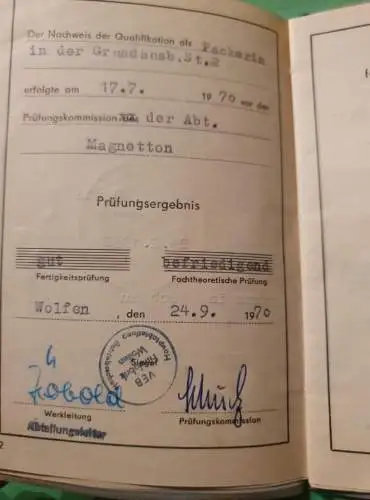 Der Nachweis der Qualifikation als Packerin
in der Grundausb.St.2
erfolgte am 17.7. 1970 vor der
Prüfungskommission der Abt.
Magnetton
Prüfungsergebnis
gut befriedigend
Fertigkeitsprüfung Fachtheoretische Prüfung
Wolfen, den 24.9. 1970
VEB
Wolfen
Werkleitung Prüfungskommission
Abteilungsleiter
2